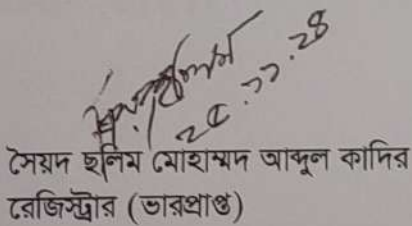 ২৫.১১.২৪
সৈয়দ ছলিম মোহাম্মদ আব্দুল কাদির
রেজিস্ট্রার (ভারপ্রাপ্ত)